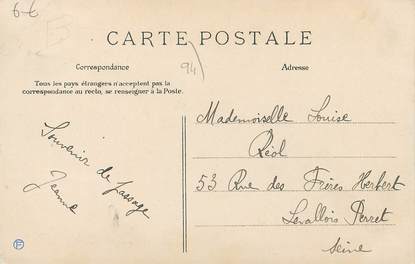 6-€
CARTE POSTALE
94
Correspondance
Adresse
Tous les pays étrangers n'acceptent pas la
correspondance au recto, se renseigner à la Poste.
Souvenir de passage
Jeanne
Mademoiselle Louise
Réol
53 Rue des Frères Herbert
Levallois Perret
Seine